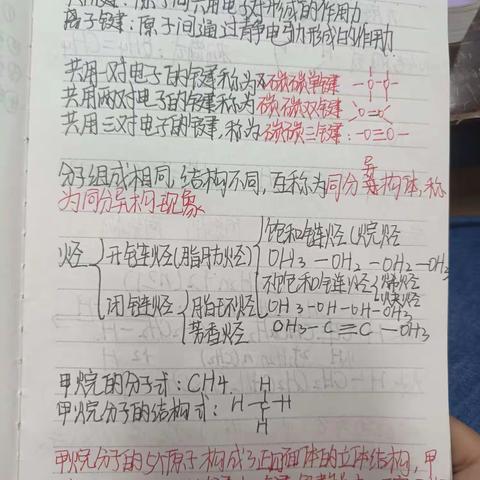 离子键:原子间通过静电引力形成的作用力
共用一对电子的键称为碳碳单键
共用两对电子的键称为碳碳双键
共用三对电子的键,称为碳碳三键
分子组成相同,结构不同,互称为同分异构体,称
为同分异构现象
烃 开链烃(脂肪烃) 饱和链烃(烷烃
OH3-OH2-OH2-OH3
不饱和链烃 烯烃
炔烃
OH3-OH-OH-OH3
闭链烃 脂环烃
芳香烃 OH3-C≡C-OH3
甲烷的分子式:CH4.
甲烷分子的结构式: H-C-H
H H
甲烷分子的5个原子构成了正四面体的立体结构,甲